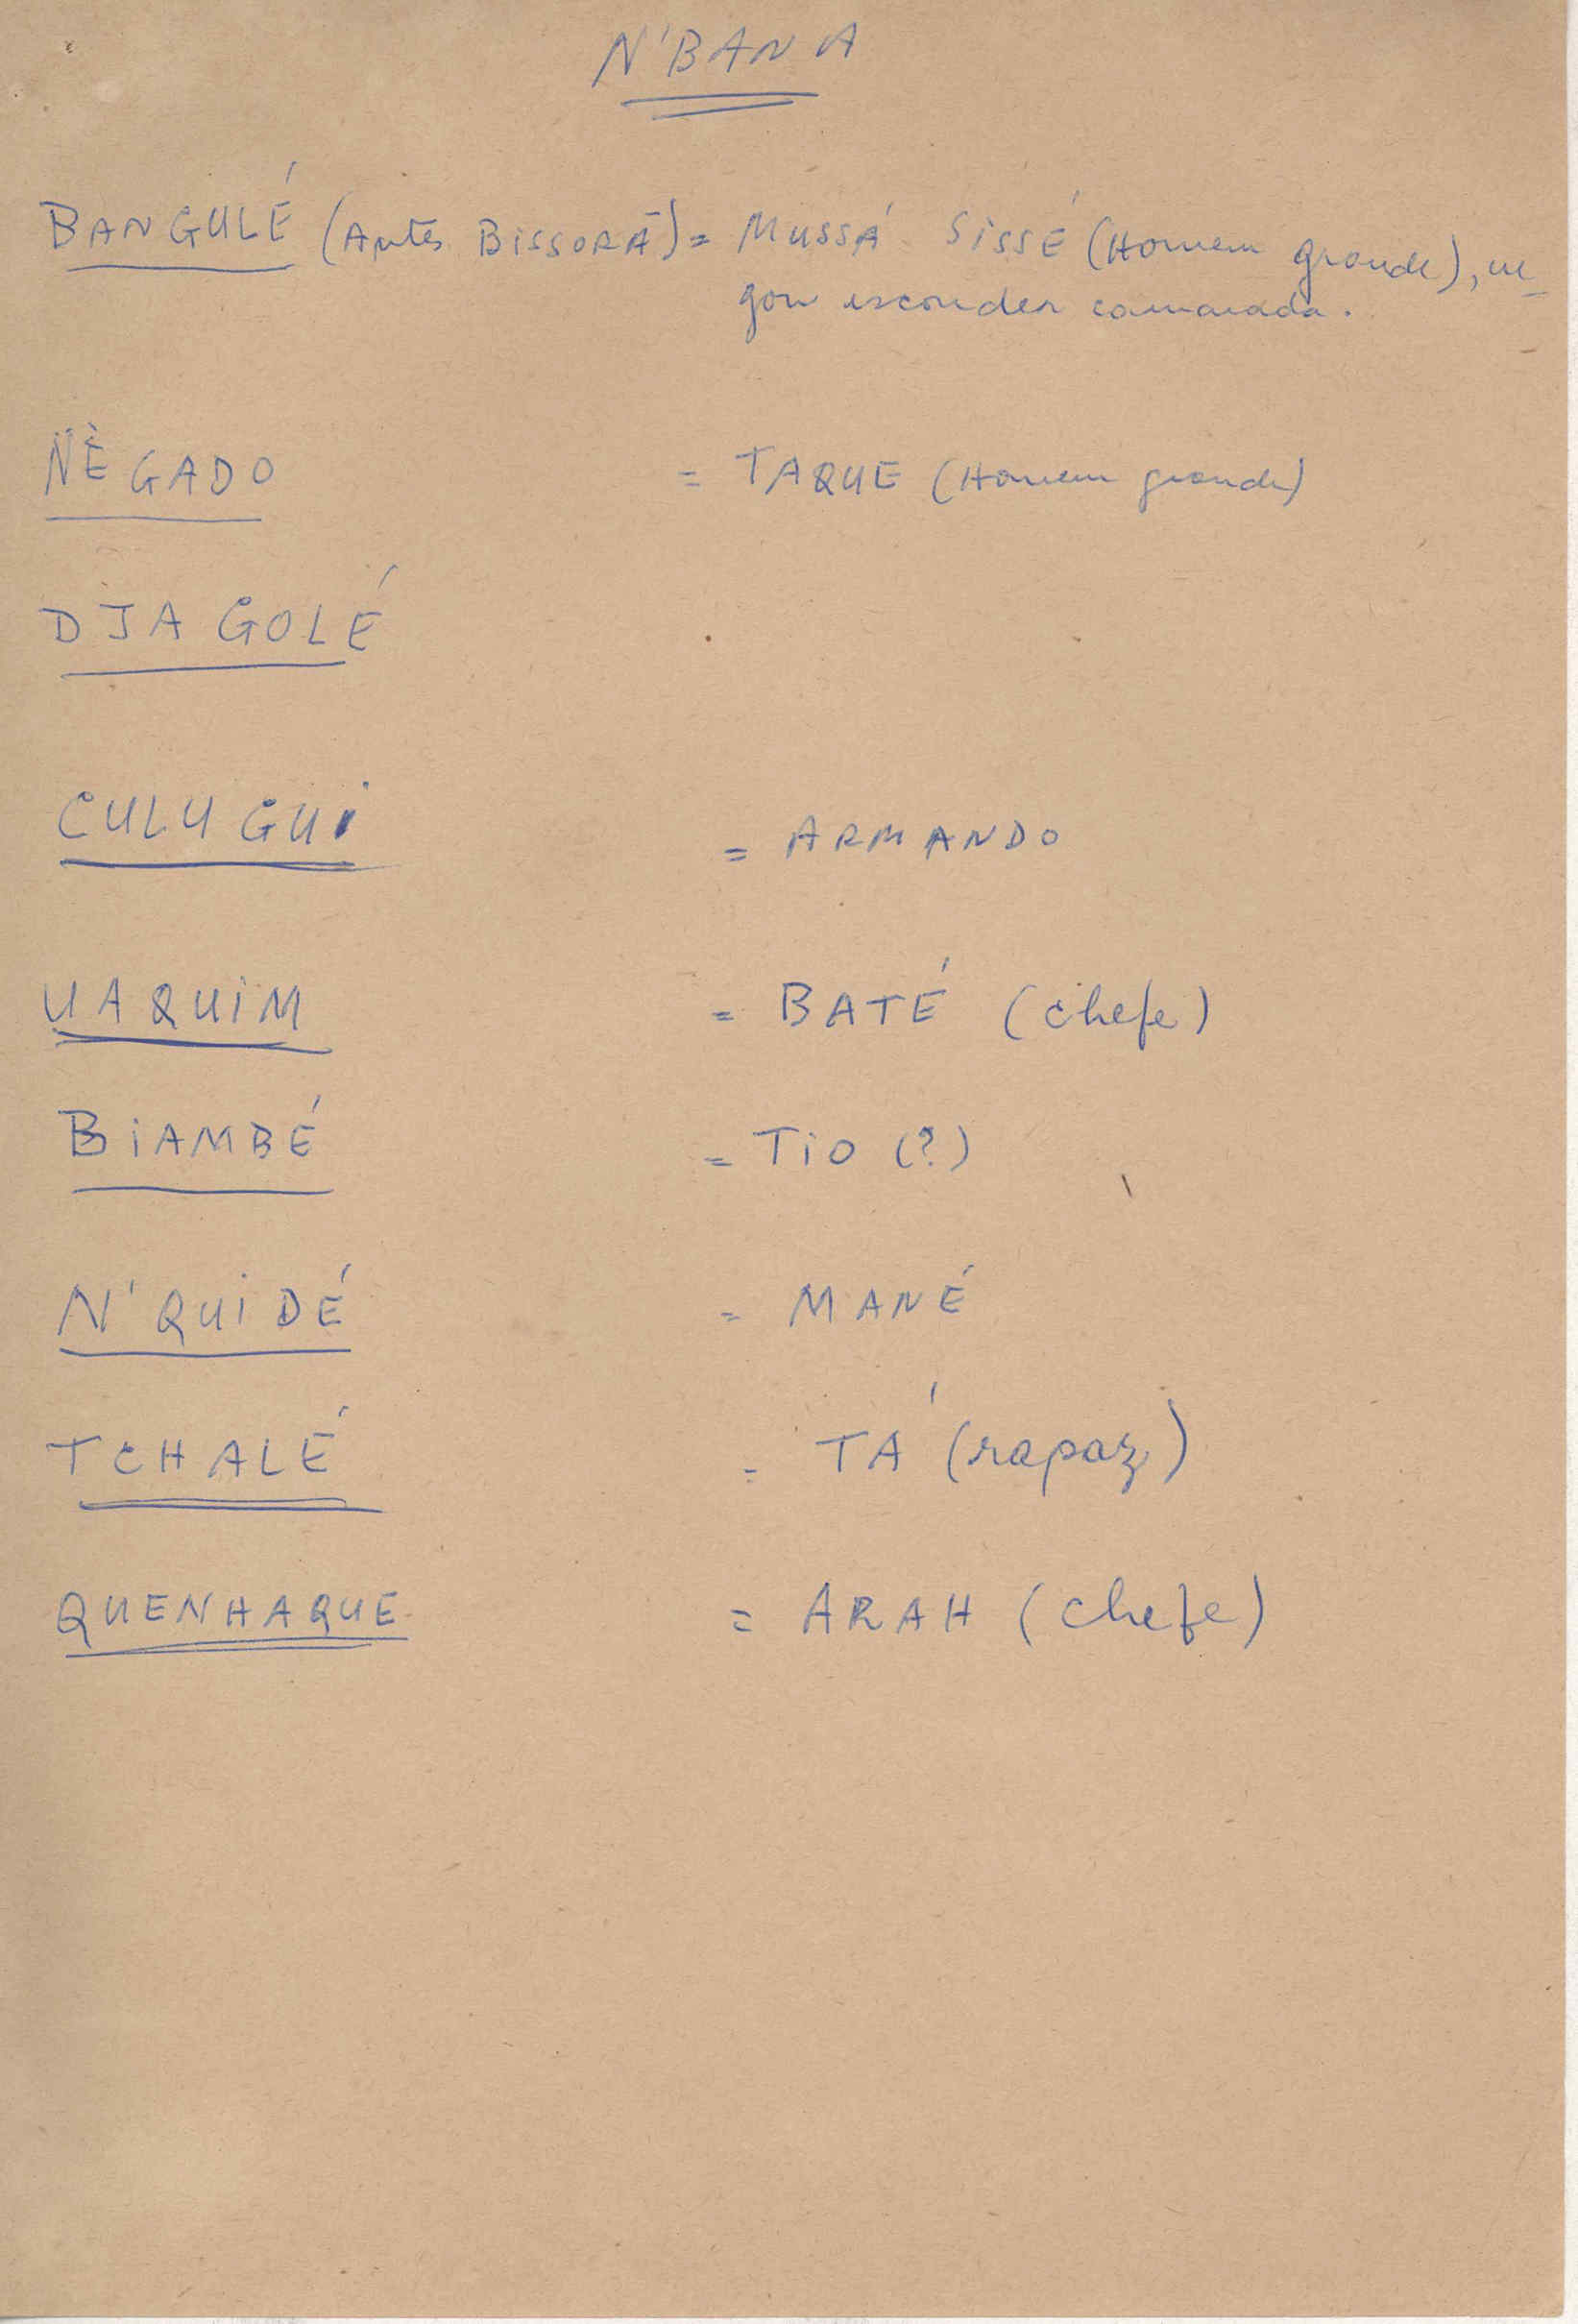 N'BANA
BANGULÉ (Antes BISSORÃ) = MUSSÁ SISSÉ (Homem grande), ne-
gou esconder camarada.
NÈGADO = TAQUE (Homem grande)
DJAGOLÉ
CULUGUI = ARMANDO
UAQUIM = BATÉ (chefe)
BIAMBÉ = TIO (?)
N'QUIDÉ = MANÉ
TCHALÉ = TÁ (rapaz)
QUENHAQUE = ARAH (chefe)